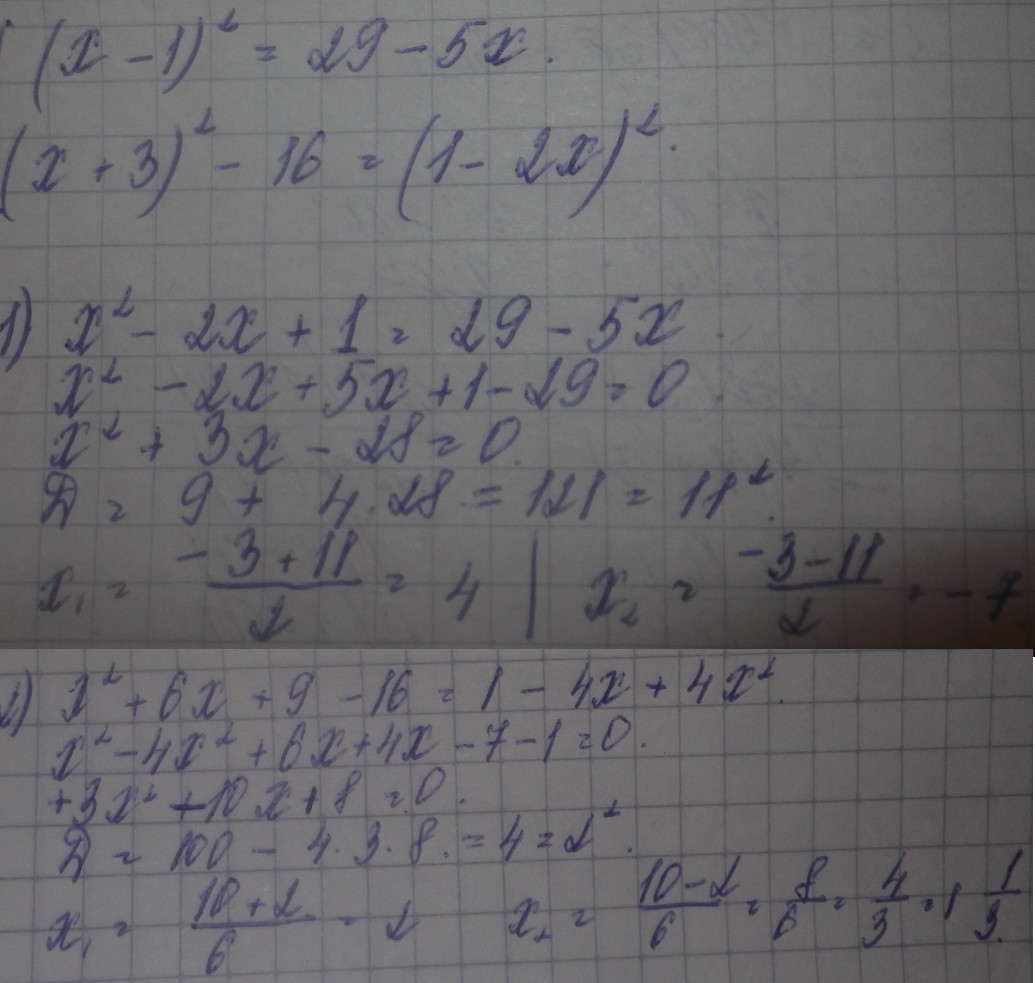 (x - 1)² = 29 - 5x.
(x + 3)² - 16 = (1 - 2x)².
1) x² - 2x + 1 = 29 - 5x
x² - 2x + 5x + 1 - 29 = 0
x² + 3x - 28 = 0
D = 9 + 4 · 28 = 121 = 11².
x₁ = (-3 + 11)/2 = 4 | x₂ = (-3 - 11)/2 = -7
2) x² + 6x + 9 - 16 = 1 - 4x + 4x².
x² - 4x² + 6x + 4x - 7 - 1 = 0.
+3x² - 10x + 8 = 0.
D = 100 - 4 · 3 · 8 = 4 = 2².
x₁ = (10 + 2)/6 = 2 x₂ = (10 - 2)/6 = 8/6 = 4/3 = 1 1/3.